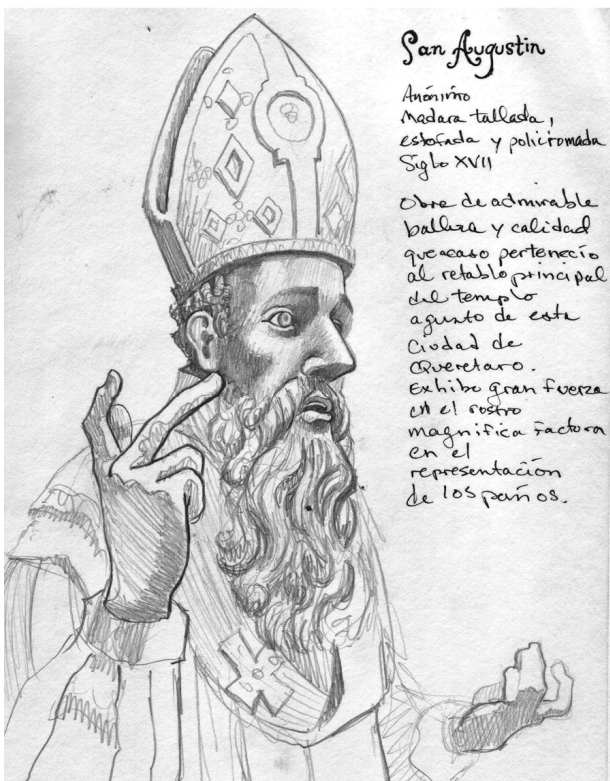 San Augustin
Anónimo
Madara tallada,
estofada y policromada
Siglo XVII
Obra de admirable
balleza y calidad
que acaso pertenecio
al retablo principal
del templo
agusto de esta
Ciudad de
Queretaro.
Exhibe gran fuerza
en el rostro
magnifica factora
en el
representación
de los paños.